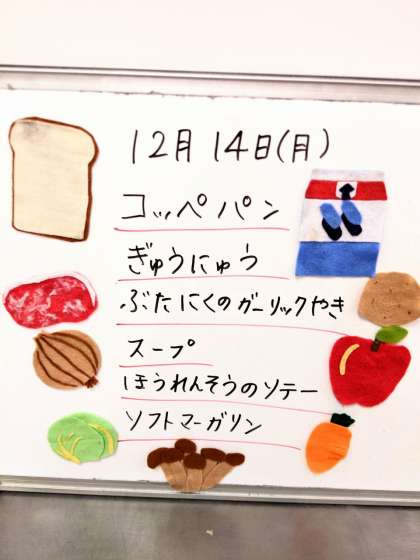 12月 14日(月)
コッペパン
ぎゅうにゅう
ぶたにくのガーリックやき
スープ
ほうれんそうのソテー
ソフトマーガリン